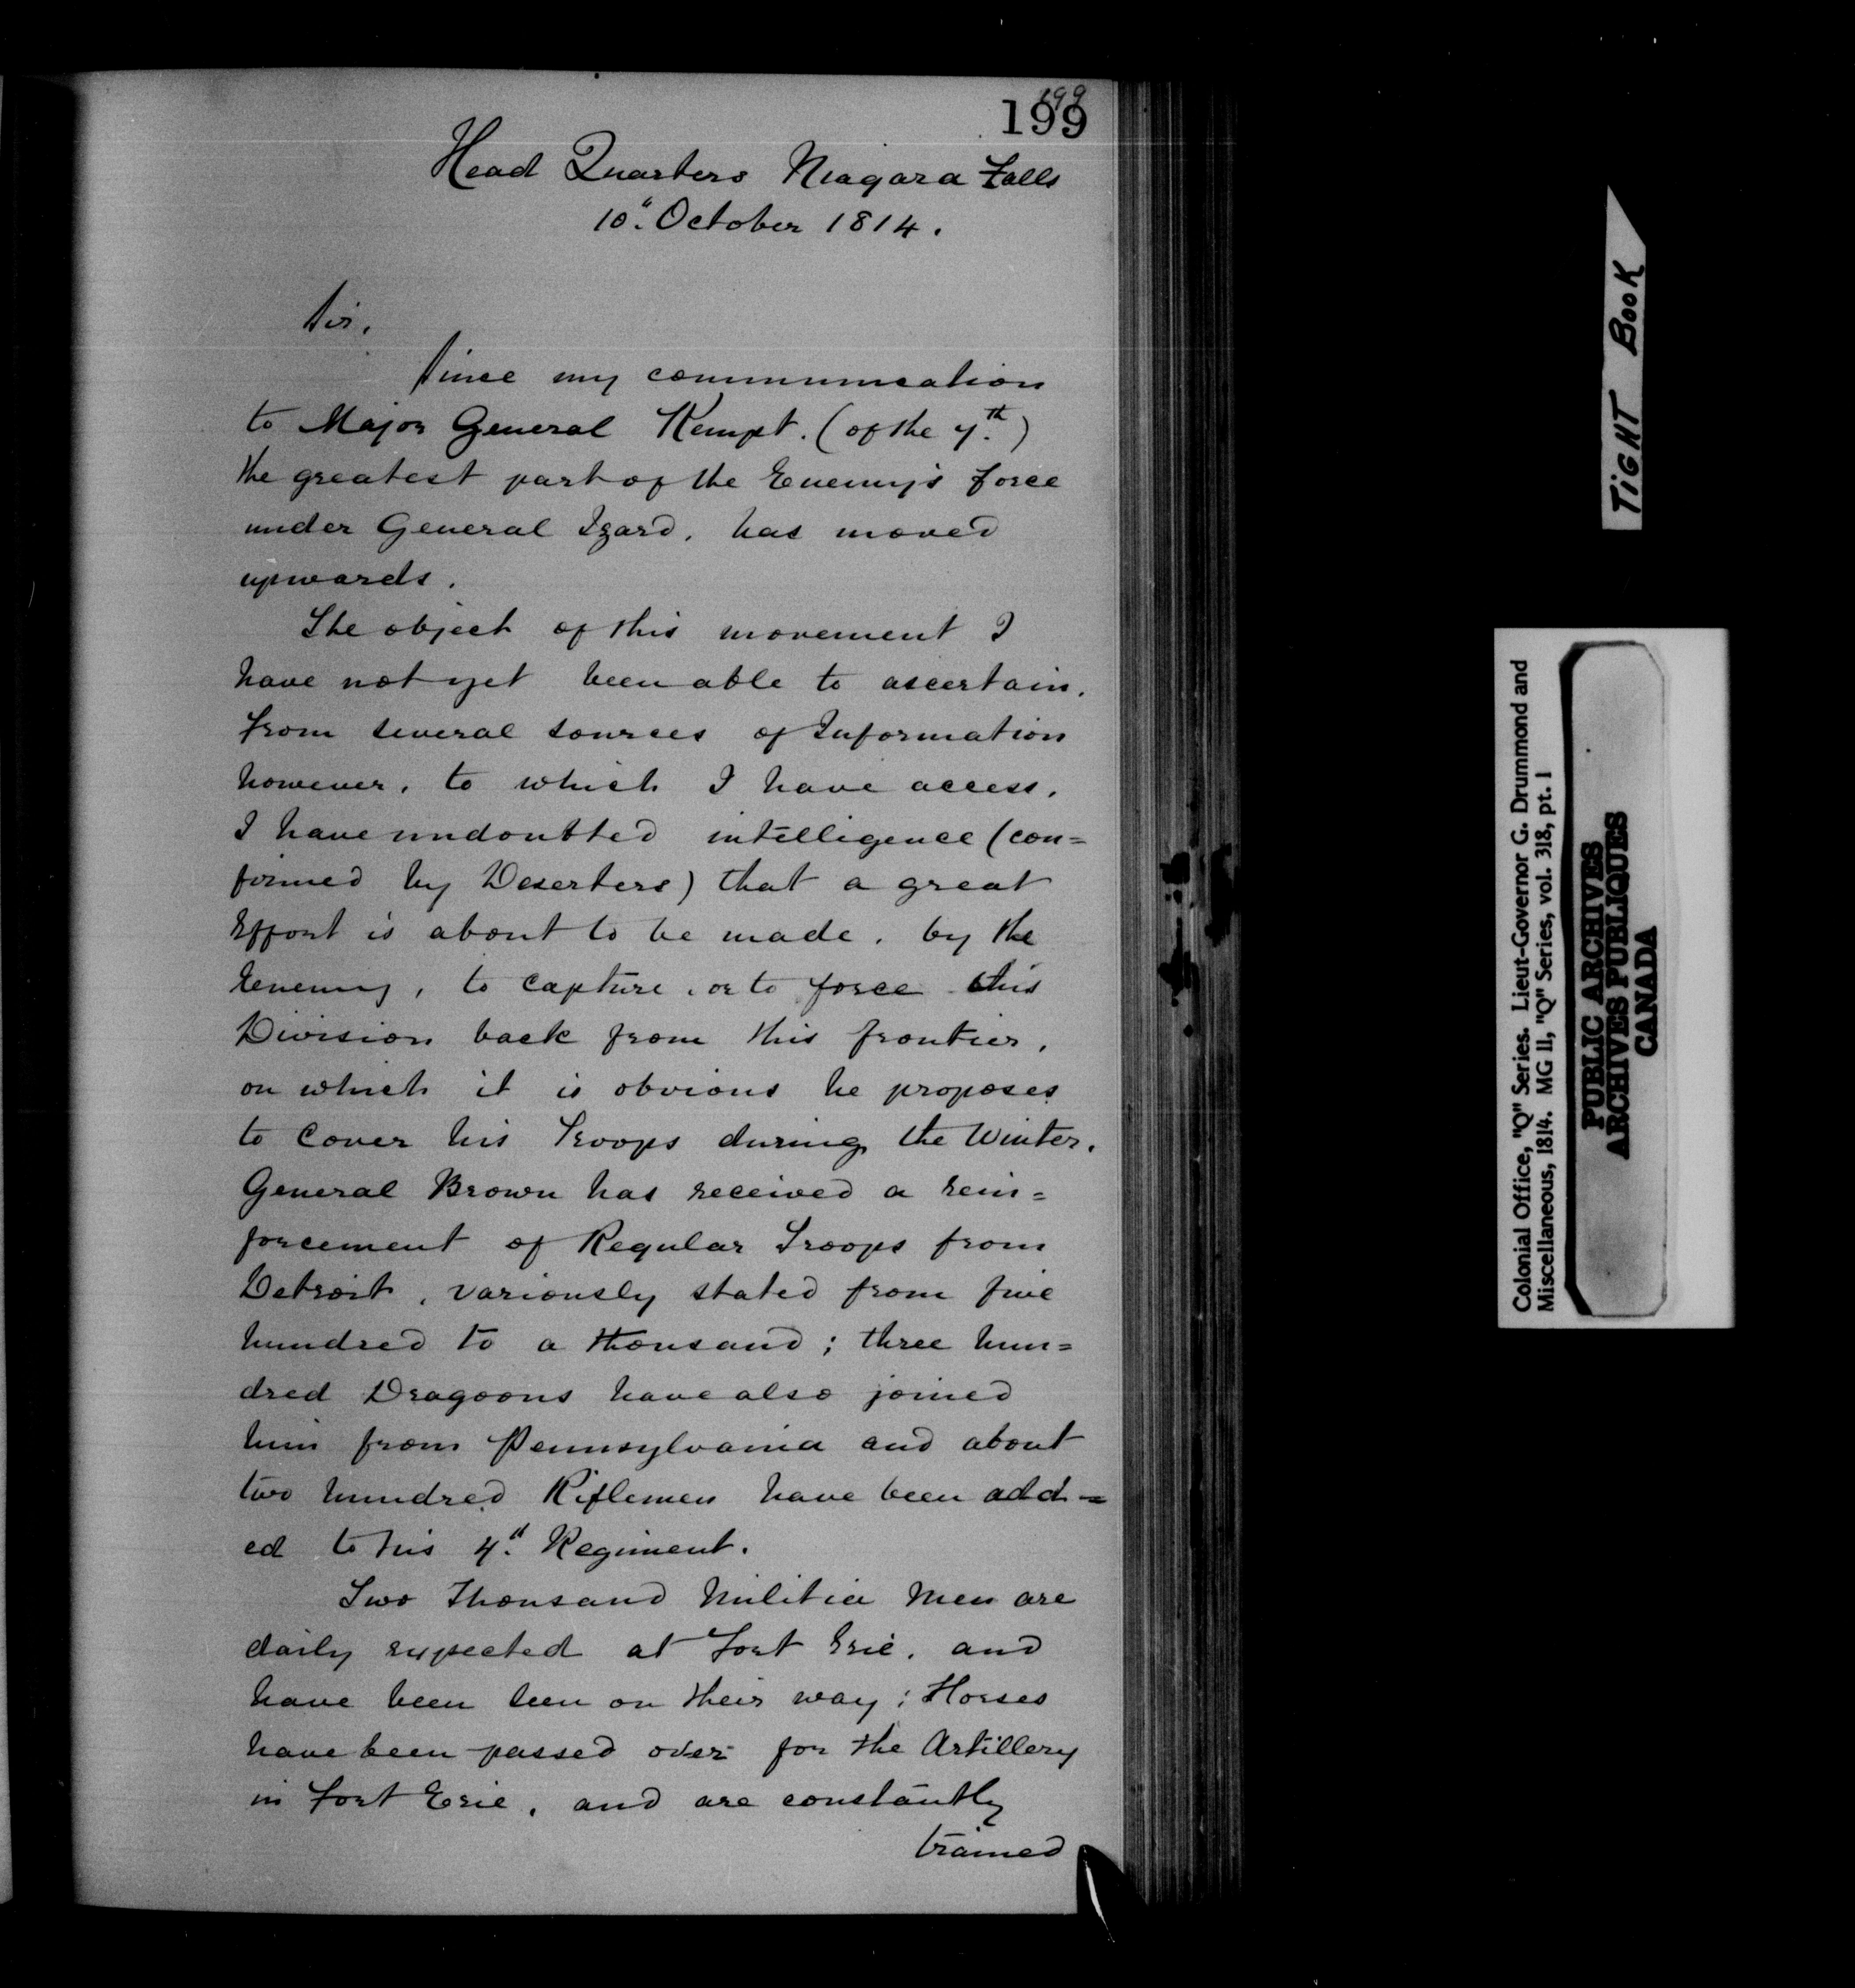 199
199
Head Quarters Niagara Falls
10". October 1814.
Sir,
Since my communication
to Major General Kempt. (of the 7.th)
the greatest part of the Enemy's force
under General Izard, has moved
upwards.
The object of this movement I
have not yet been able to ascertain.
From several sources of Information
however, to which I have access,
I have undoubted intelligence (con=
firmed by Deserters) that a great
Effort is about to be made, by the
Enemy, to capture, or to force this
Division back from this frontier,
on which it is obvious he proposes
to Cover his Troops during the Winter.
General Brown has received a rein=
forcement of Regular Troops from
Detroit, variously stated from five
hundred to a thousand; three hun=
dred Dragoons have also joined
him from Pennsylvania and about
two hundred Riflemen have been add=
ed to his 4". Regiment.
Two Thousand Militia Men are
daily expected at Fort Erie, and
have been seen on their way; Horses
have been passed over for the Artillery
in Fort Erie, and are constantly
trained
TIGHT BOOK
Colonial Office, "Q" Series. Lieut-Governor G. Drummond and
Miscellaneous, 1814. MG 11, "Q" Series, vol. 318, pt. 1
PUBLIC ARCHIVES
ARCHIVES PUBLIQUES
CANADA